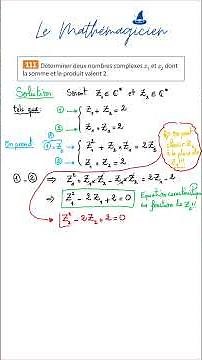 Le Mathémagicien
111 Déterminer deux nombres complexes z₁ et z₂ dont
la somme et le produit valent 2.
Solution Soient Z₁ ∈ ℂ* et Z₂ ∈ ℂ*
tels que:
① → { Z₁ + Z₂ = 2
② → { Z₁ × Z₂ = 2
On prend ① × Z₁ { Z₁² + Z₁ × Z₂ = 2Z₁
② → Z₁ × Z₂ = 2
① - ② ⇒ Z₁² + Z₁×Z₂ - Z₁×Z₂ = 2Z₁ - 2
⇒ Z₁² - 2Z₁ + 2 = 0
Equation caractéristique
en fonction de Z₁
Z₂² - 2Z₂ + 2 = 0
à la place